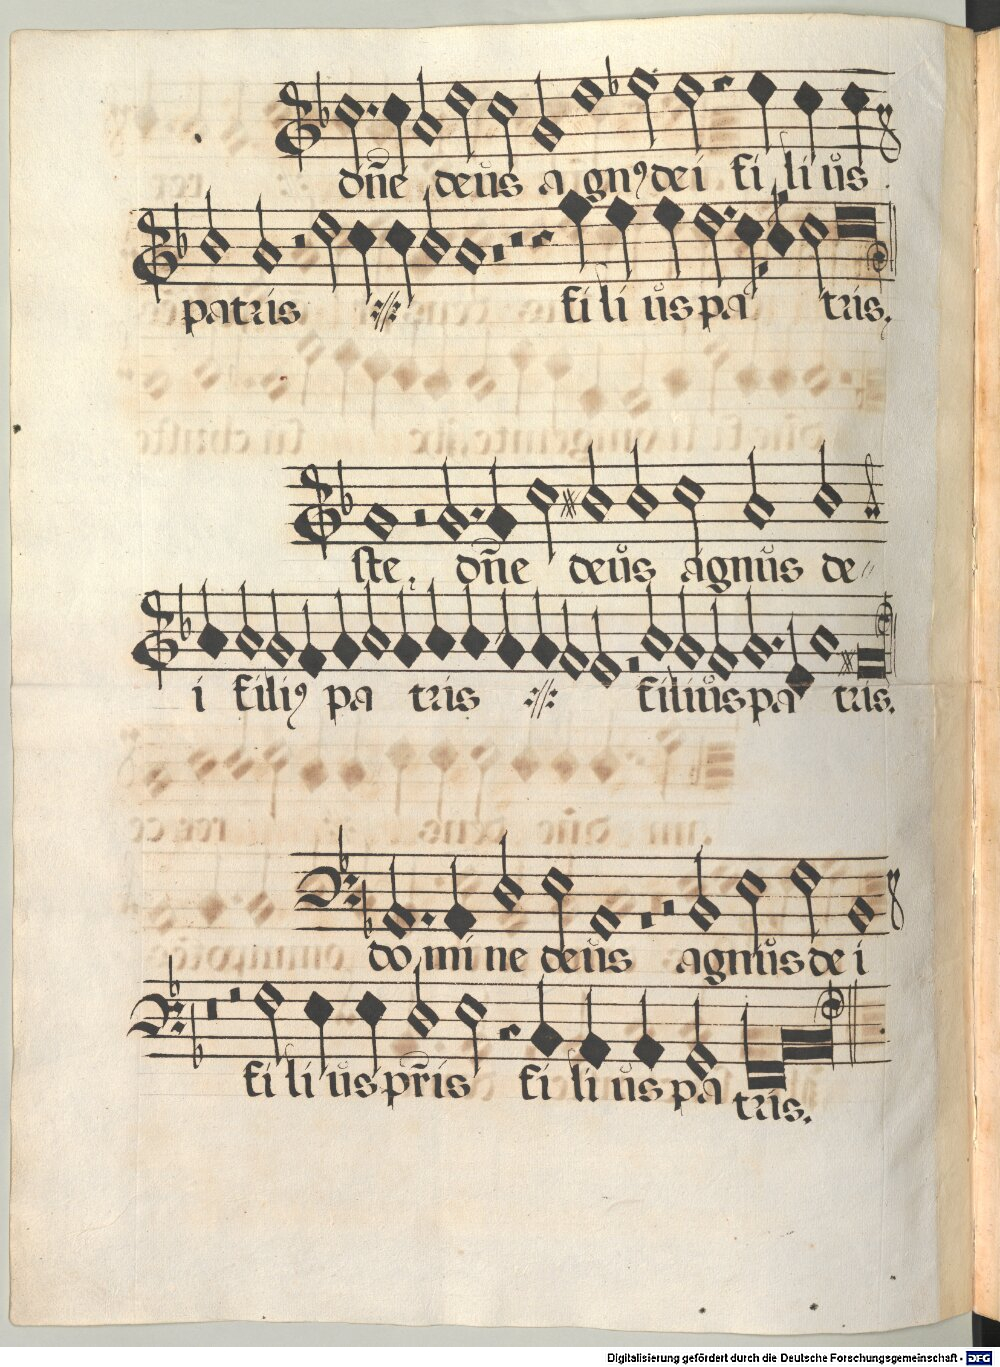 dn̄e deus agnꝰ dei fi li us
patris fi li us pa tris.
ste. dn̄e deus agnus de
i filiꝰ pa tris filius pa tris.
do mi ne deus agnus de i
fi li us pr̄is fi li us pa tris.
Digitalisierung gefördert durch die Deutsche Forschungsgemeinschaft - DFG